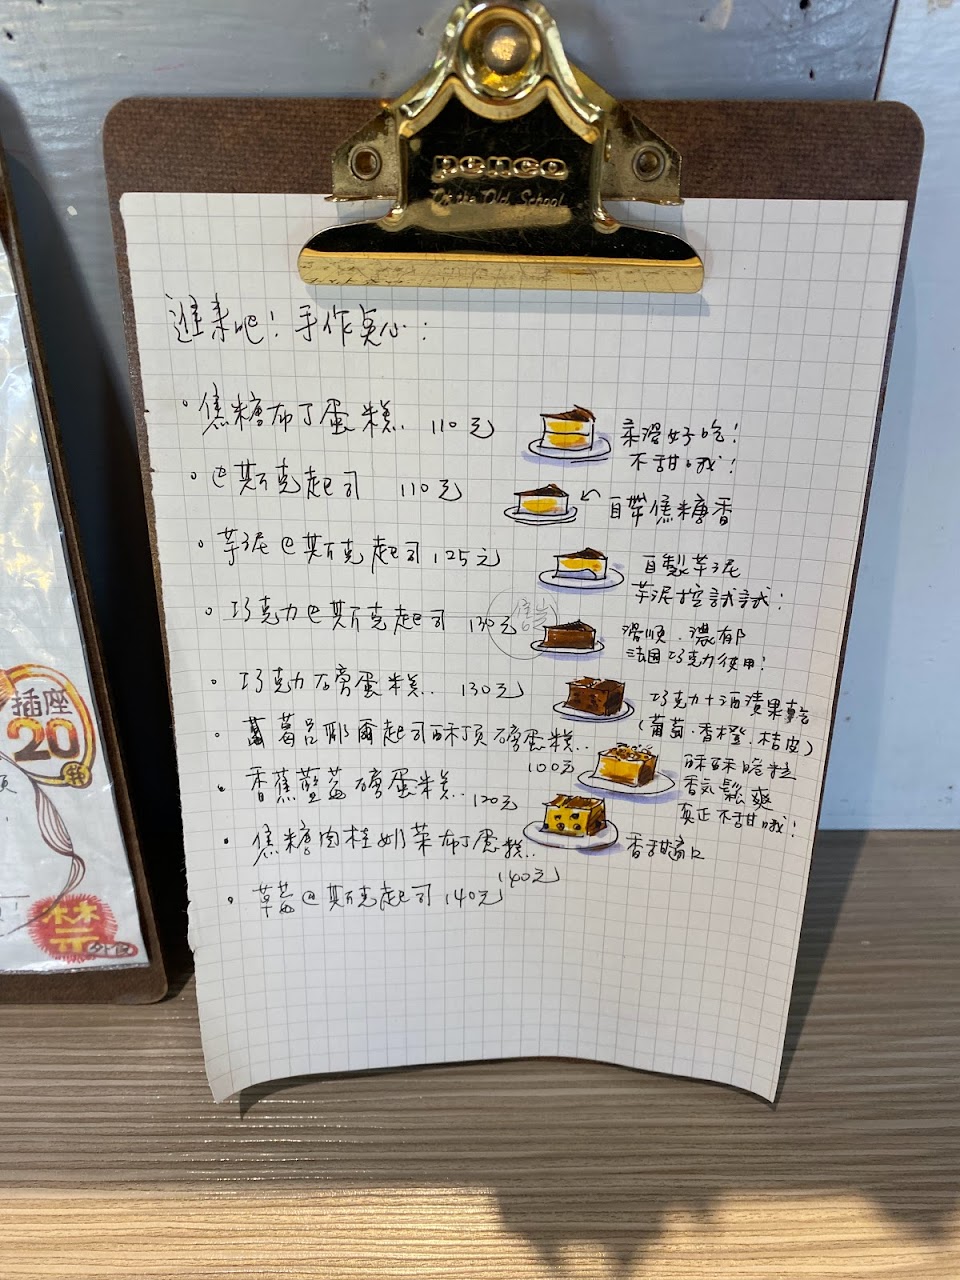 penco
On the Old School
進來吧！手作點心：
・焦糖布丁蛋糕.. 110元
柔滑好吃！
不甜哦！
・巴斯克起司 110元
自帶焦糖香
・芋泥巴斯克起司 125元
自製芋泥
芋泥控試試！
・巧克力巴斯克起司 130元
滑順．濃郁
法國巧克力使用！
・巧克力磅蛋糕.. 130元
巧克力＋酒漬果乾
(葡萄．香橙．桔皮)
・蘿蔔呂耶爾起司酥頂磅蛋糕..
100元
酥酥脆粒
香氣鬆爽
真正不甜哦！
・香蕉藍莓磅蛋糕.. 120元
香甜適口
・焦糖肉桂奶茶布丁蛋糕..
140元
・草莓巴斯克起司 140元
插座
20
元
禁
外食